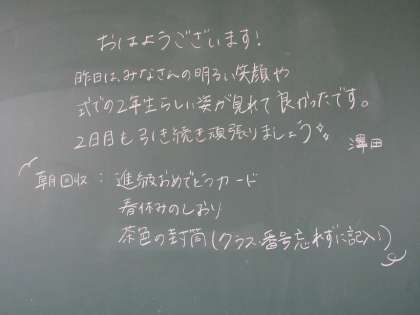 おはようございます!
昨日はみなさんの明るい笑顔や
式での2年生らしい姿が見れて良かったです。
2日目も引き続き頑張りましょう
澤田
朝回収：進級おめでとうカード
春休みのしおり
茶色の封筒(クラス・番号忘れずに記入!)